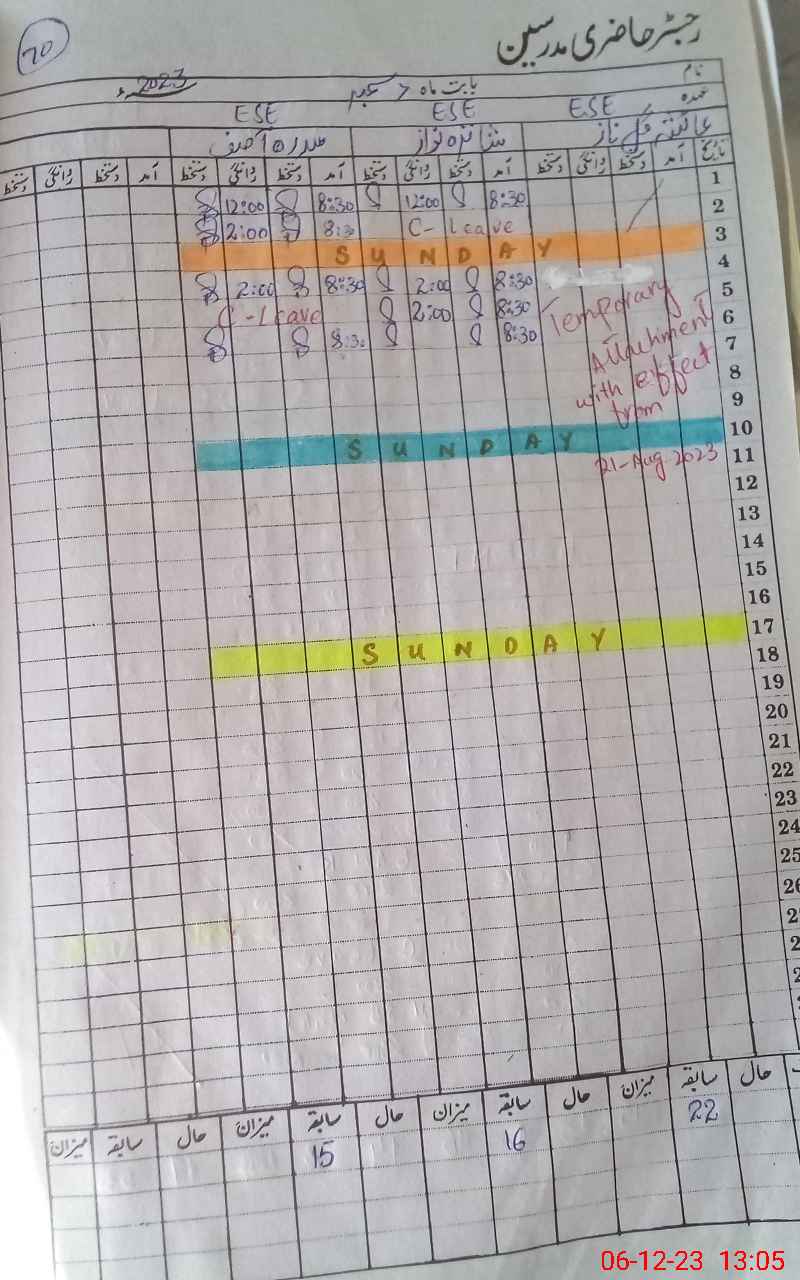 70
رجسٹر حاضری مدرسین
نام
بابت ماہ دسمبر 2023ء
عہدہ ESE ESE ESE
عائشہ گل ناز شازہ نواز سدرہ آصف
تاریخ آمد دستخط روانگی دستخط آمد دستخط روانگی دستخط آمد دستخط روانگی دستخط آمد دستخط روانگی دستخط
1 8:30 12:00 8:30 12:00
2 C-Leave 8:30 2:00
3 SUNDAY
4
5 8:30 2:00 8:30 2:00
6 8:30 2:00 C-Leave
7 8:30 8:30
Temporary
Attachment
with effect
from
21-Aug 2023
8
9
10 SUNDAY
11
12
13
14
15
16
17 SUNDAY
18
19
20
21
22
23
24
25
26
حال سابقہ میزان حال سابقہ میزان حال سابقہ میزان حال سابقہ میزان
22 16 15
06-12-23 13:05